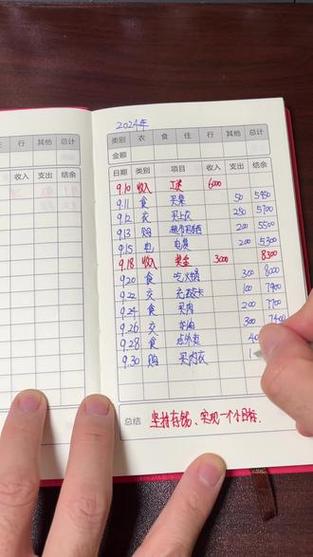 2024年
类别 衣 食 住 行 其他 总计
金额
日期 类别 项目 收入 支出 结余
9.10 收入 工资 6000
9.11 食 买菜 50 5950
9.12 衣 买上衣 250 5700
9.13 购 200 5500
9.15 电 电费 200 5300
9.18 收入 奖金 3000 8300
9.20 食 吃火锅 300 8000
9.22 交 充话卡 100 7900
9.24 食 买肉 200 7700
9.26 交 300 7400
9.28 食 点外卖 40
9.30 购 买内衣 1
总结 坚持存钱、实现一个小目标.
行 其他 总计
收入 支出 结余